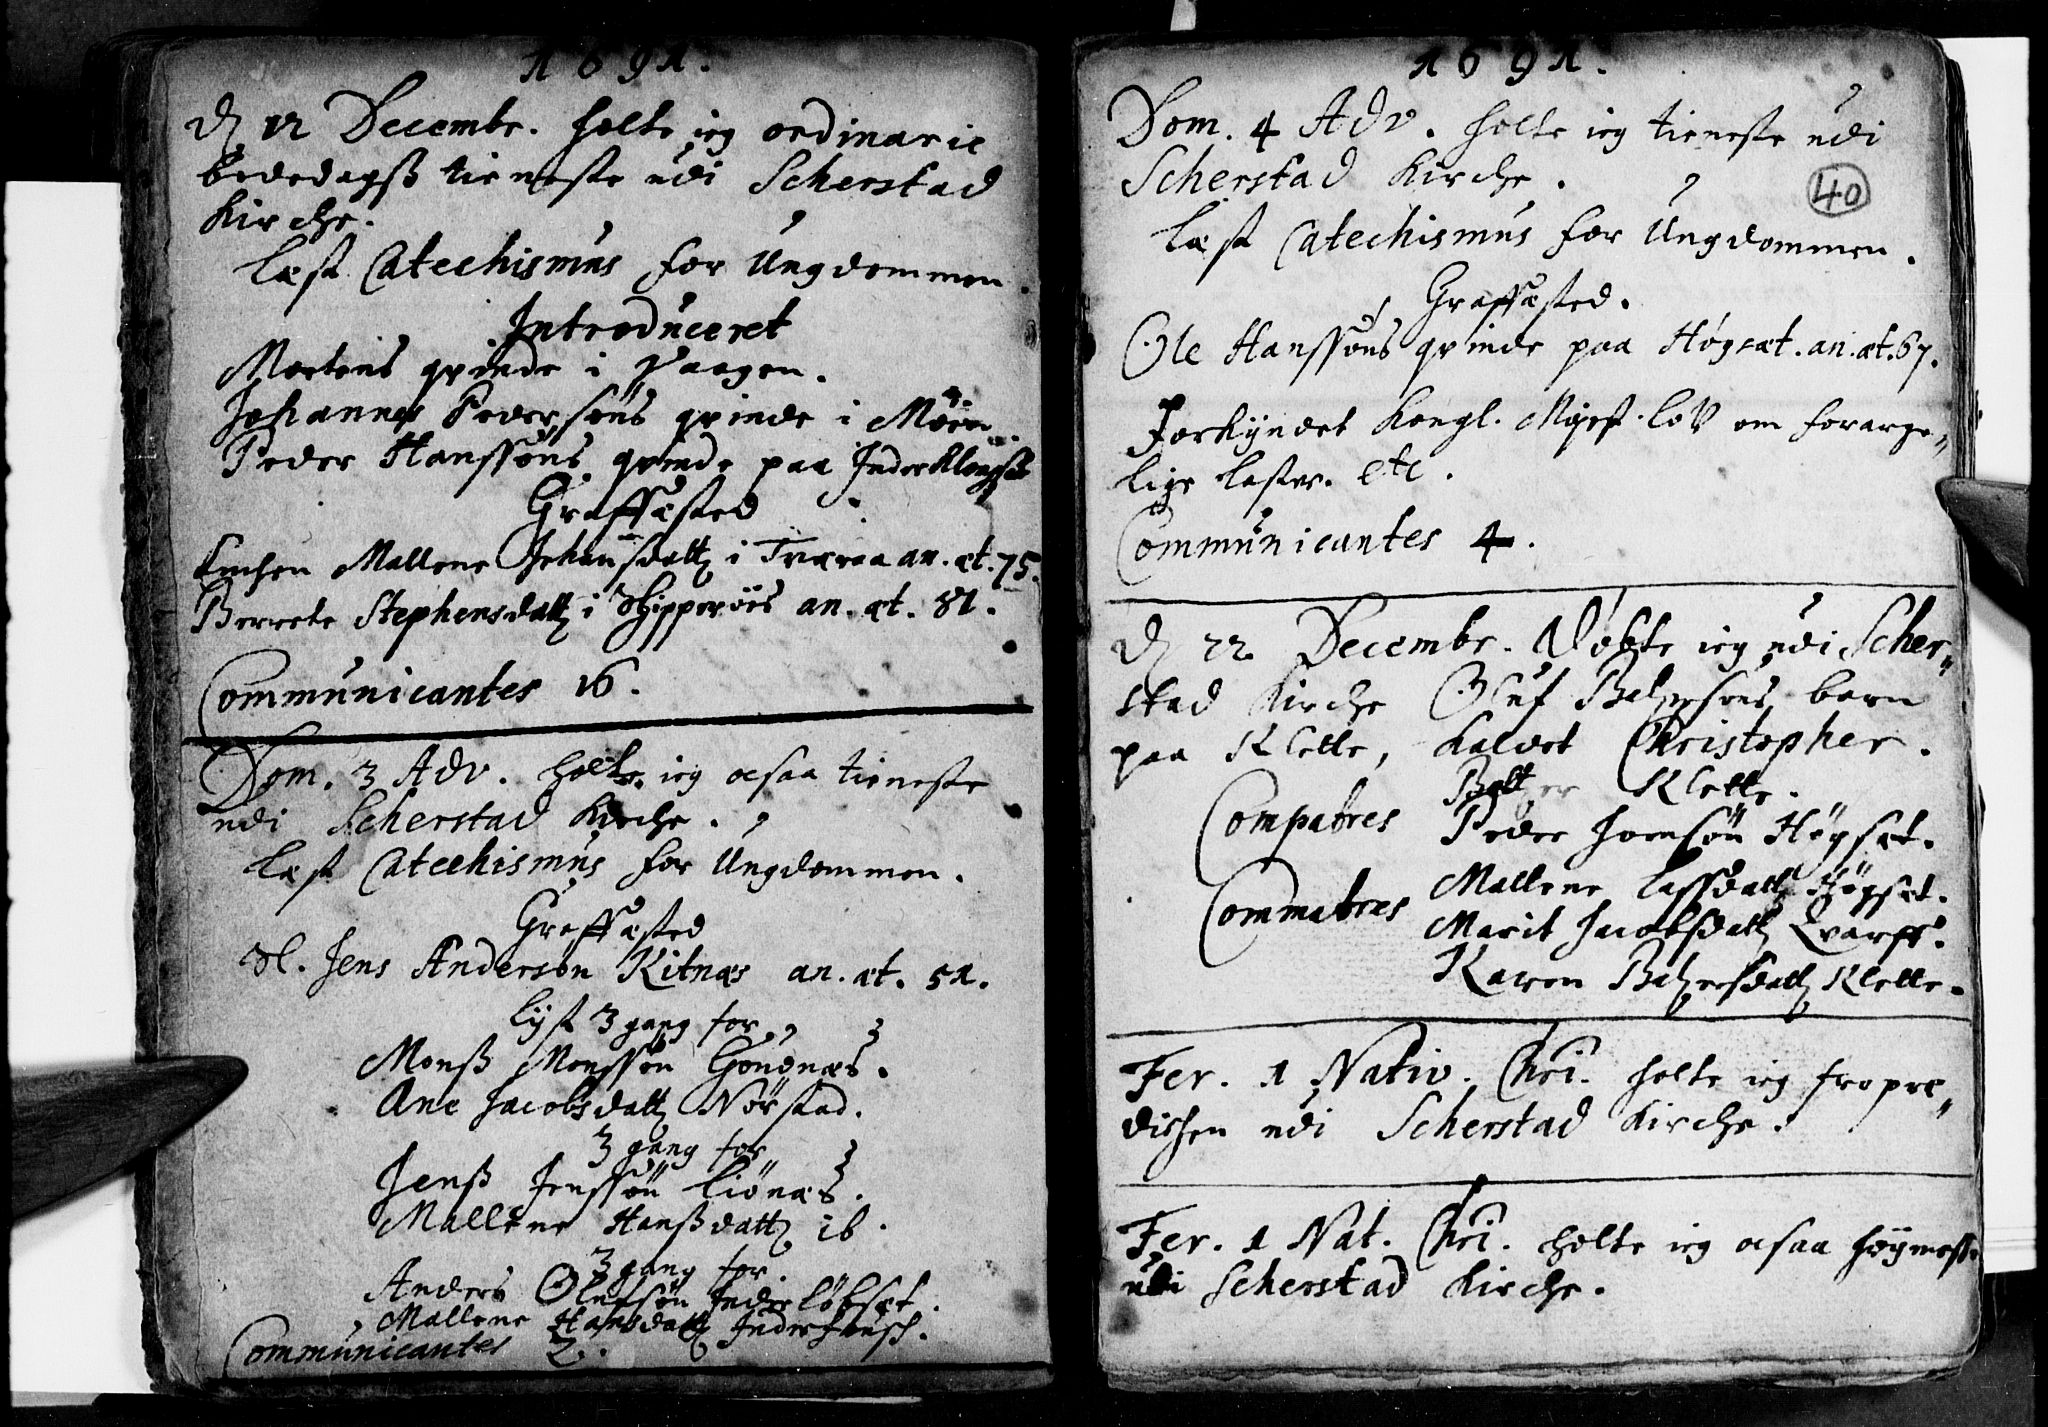 1691.
D 12 Decembr. holte ieg ordinarie
bededagß tieneste udi Scherstad
Kirche.
Læst Catechismus for Ungdommen.
Introduceret
Mortens qvinde i Vaagen.
Johannes Pedersøns qvinde i Møen.
Peder Hanssøns qvinde paa Inder
Graffæsted
Enchen Mallene Johansdatt i Træraa an. æt. 75.
Berrete Stephensdatt i an. æt. 81.
Communicantes 16.
Dom. 3 Adv. holte ieg ocsaa tieneste
udi Scherstad Kirche.
Læst Catechismus for Ungdommen.
Graffæsted
Sl. Jens Anderson Kitnæs an. æt. 51.
Lyst 3 gang for
Monß Monssøn Godnæs.
Ane Jacobsdatt Nørstad.
3 gang for
Jenß Jenssøn Liønæs.
Mallene Hanßdatt ib.
3 gang for
Anders Olufsøn Inderløbsæt.
Mallene Hansdatt
Communicantes 2.
1691.
40
Dom. 4 Adv. holte ieg tieneste udi
Scherstad Kirche.
Læst Catechismus for Ungdommen.
Graffæsted.
Ole Hanssøns qvinde paa Høgsæt. an. æt. 67.
Forkyndet Kongl. Majest. lov om forarge„
lige laster. etc.
Communicantes 4.
D 22 Decembr. Døbte ieg udi Scher„
stad Kirche Oluf Baltzersøns barn
paa Klette, kaldet Christopher.
Compatres Baltzer Klette.
Peder Joensøn Høgsæt.
Commatres Mallene Lassdatt Høgsæt.
Marit Jacobsdatt Qvarff.
Karen Baltzersdatt Klette.
Fer. 1 Nativ. Chri. holte ieg fropre„
dichen udi Scherstad Kirche.
Fer. 1 Nat. Chri. holte ieg ocsaa høymesse
udi Scherstad Kirche.